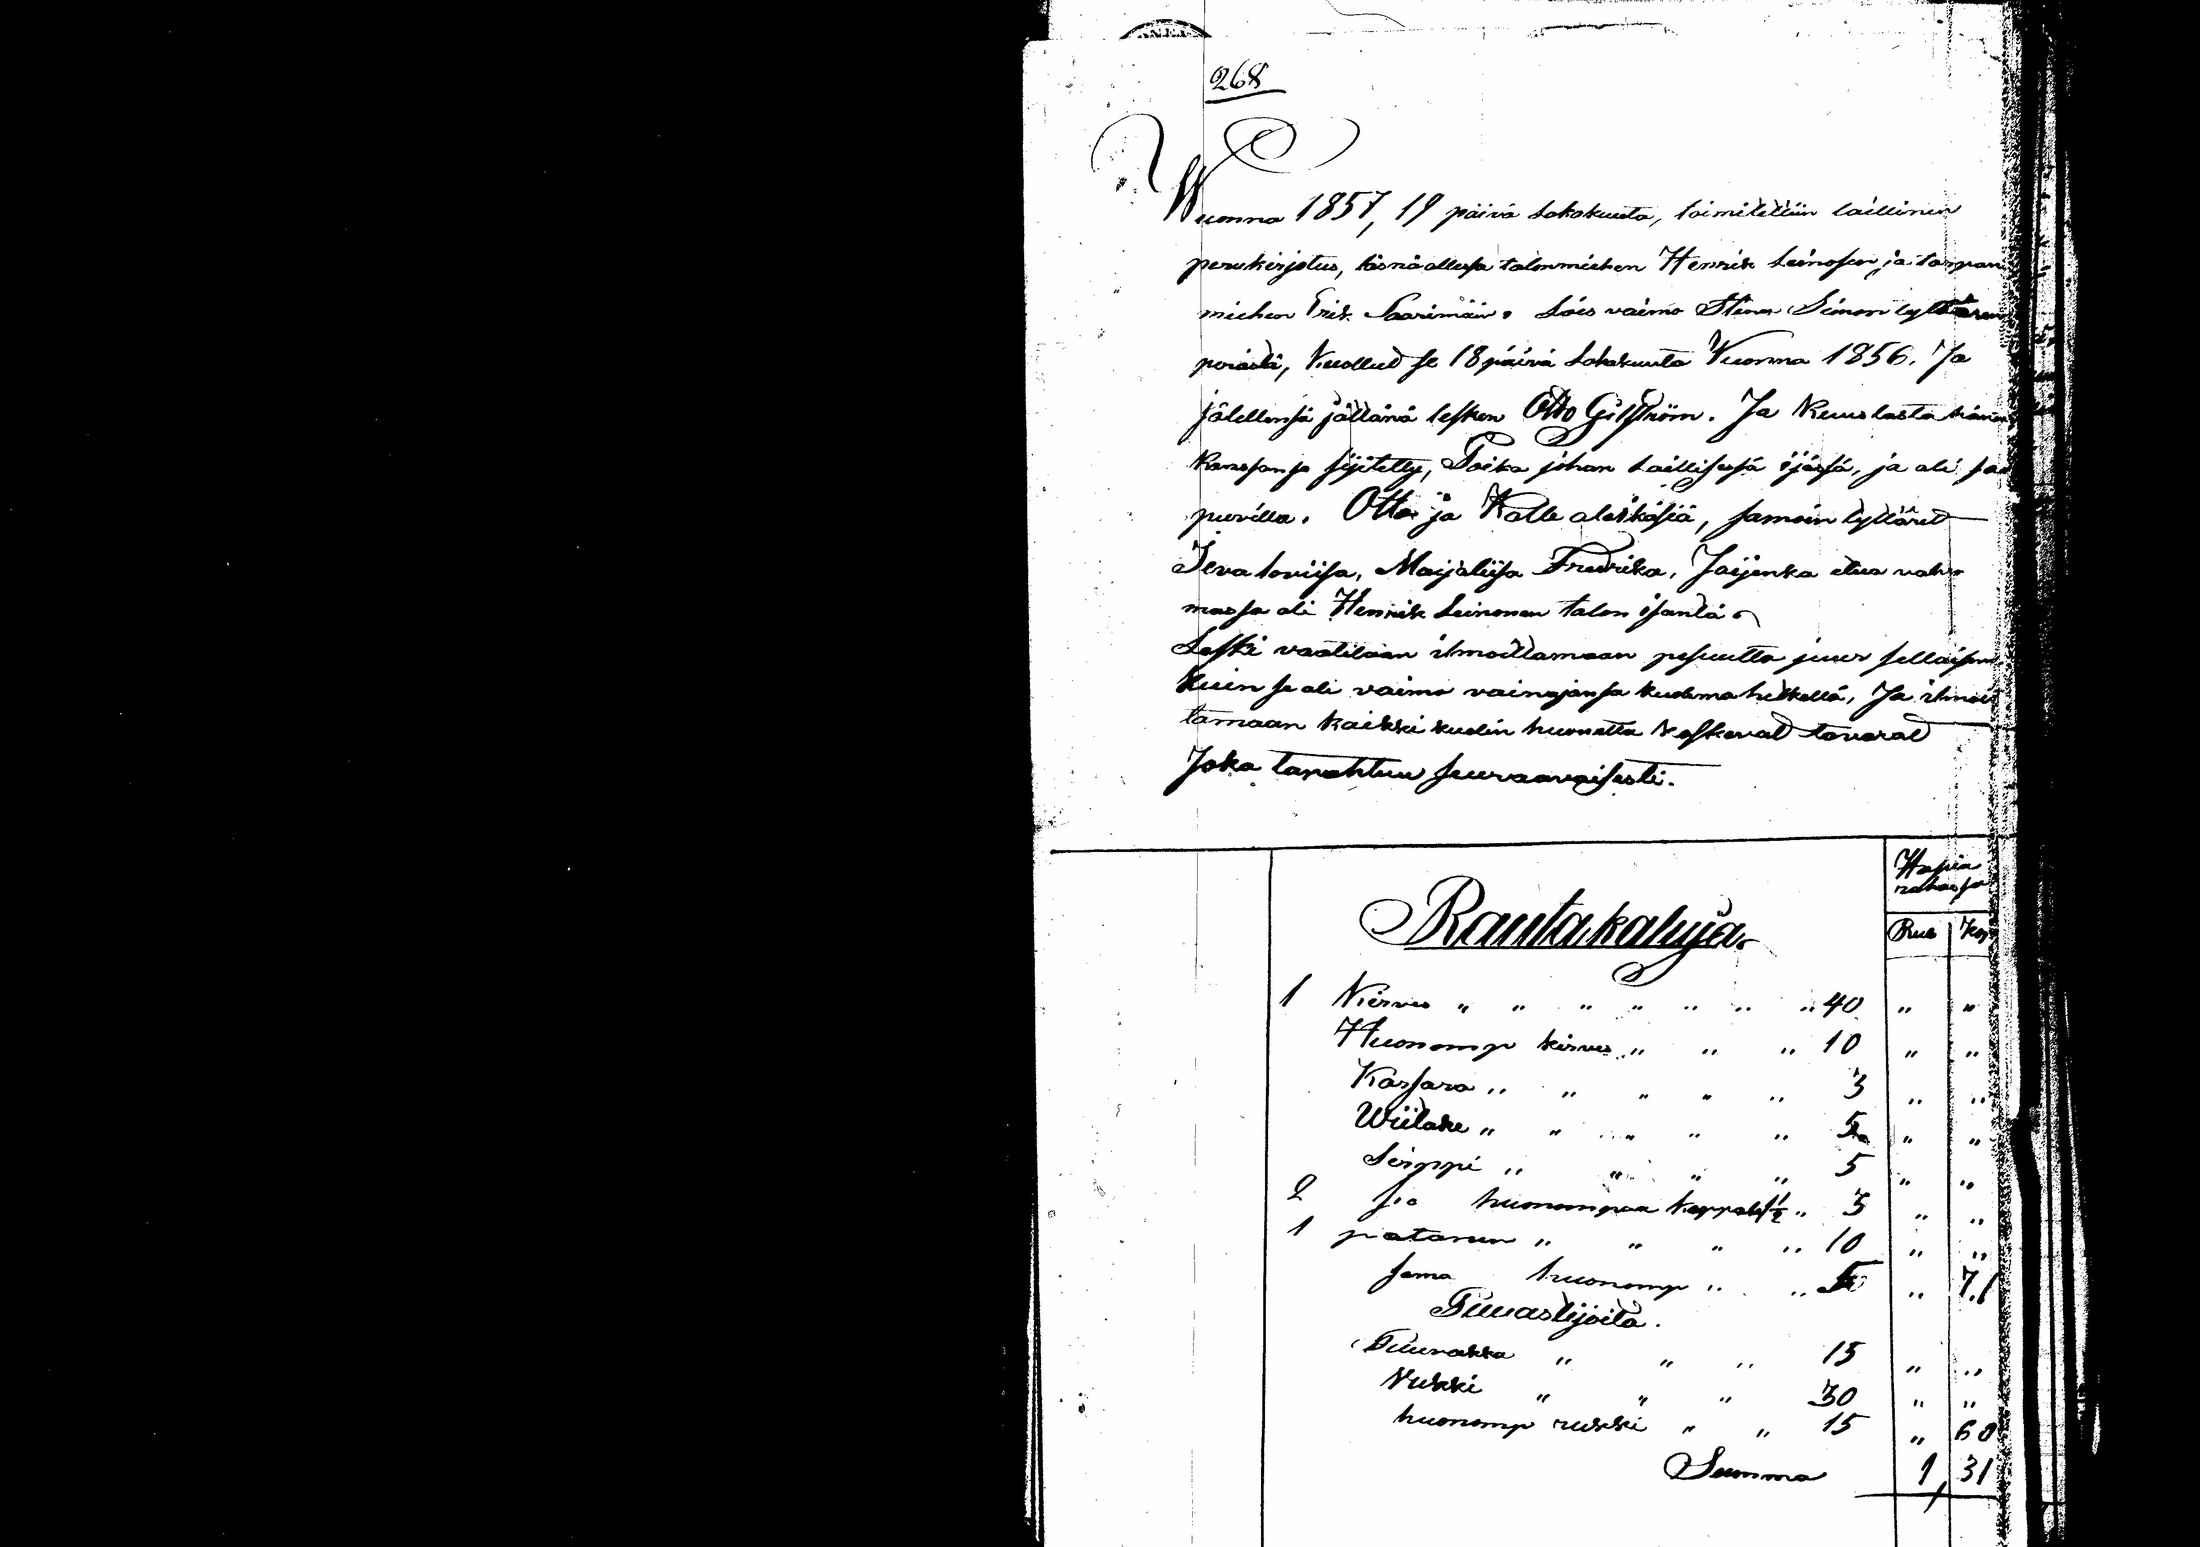 268
Wuonna 1857, 19 päivä Lokakuuta, toimitettiin laillinen
perukirjotus, läsnäollessa talonmiehen Henrik Leinosen, ja lampuan
miehen Erik Saarimäin. Löis vaimo Stina Simon tyttären
peräsdä, Kuollud se 18 päivä Lokakuuta Vuonna 1856. Ja
jälellensä jättänä lesken Otto Gilström. Ja Kuus lasta hänen
kanssansa sijitetty, Poika johan Laillisessä ijässä, ja oli saa
puvilla. Otto ja Kalle alaikäsiä, samoin tyttäred
Ieva loviisa, Maijaliisa Fredrika, Joijenka etua valvo
massa oli Henrik Leinonen talon isäntä.
Leski vaatitaan ilmoittamaan pesuutta juur sellaisna
Kuin se oli vaimo vainajansa kuolema hetkellä, Ja ilmoit
tamaan kaikki kuolin huonetta koskevad tavarad
Joka tapahtuu seuraavaisesti.
Hopia
rahassa
Rautakaluja.
Rub Kop
1 Kirves " " " " " " " 40 " "
Huonomp kirves " " " 10 " "
Kassara " " " " " 3 " "
Wiilake " " " " " 5 " "
Sirppi " " " " 5 " "
2 huonompaa kappal 1 1/2 " 3 " "
1 patanen " " " " 10 " "
sama huonomp " " 5 " 71
Puuastijoita.
Puurakka " " " 15 " "
Rukki " " " 30 " "
huonomp rukki " " 15 " 60
Summa 1, 31